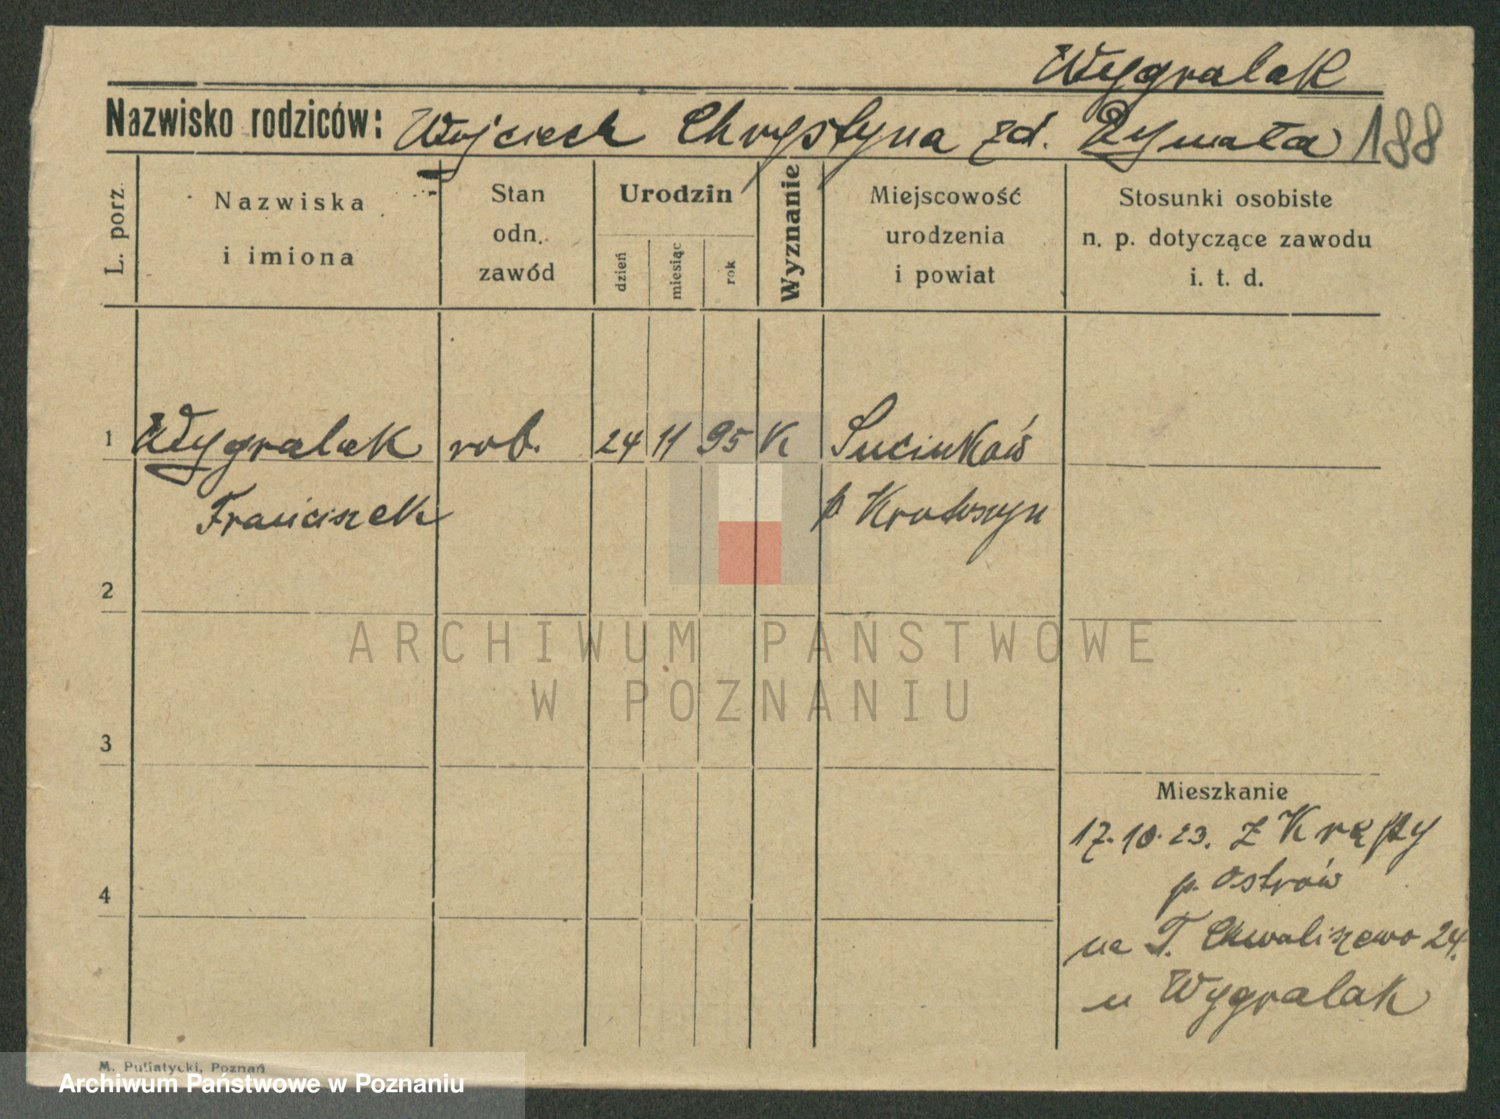 Wygralak
Nazwisko rodziców: Wojciech Chrystyna zd. Rymała 188
L. porz.
Nazwiska
i imiona
Stan
odn.
zawód
Urodzin
dzień
miesiąc
rok
Wyznanie
Miejscowość
urodzenia
i powiat
Stosunki osobiste
n. p. dotyczące zawodu
i. t. d.
1 Wygralak rob. 24 11 95 K
Franciszek p Krotoszyn
2
ARCHIWUM PAŃSTWOWE
W POZNANIU
3
Mieszkanie
17.10.23. z Krępy
4
p. Ostrów
na T. Chwaliszewo 24.
u Wygralak
M. Putiatycki, Poznań
Archiwum Państwowe w Poznaniu